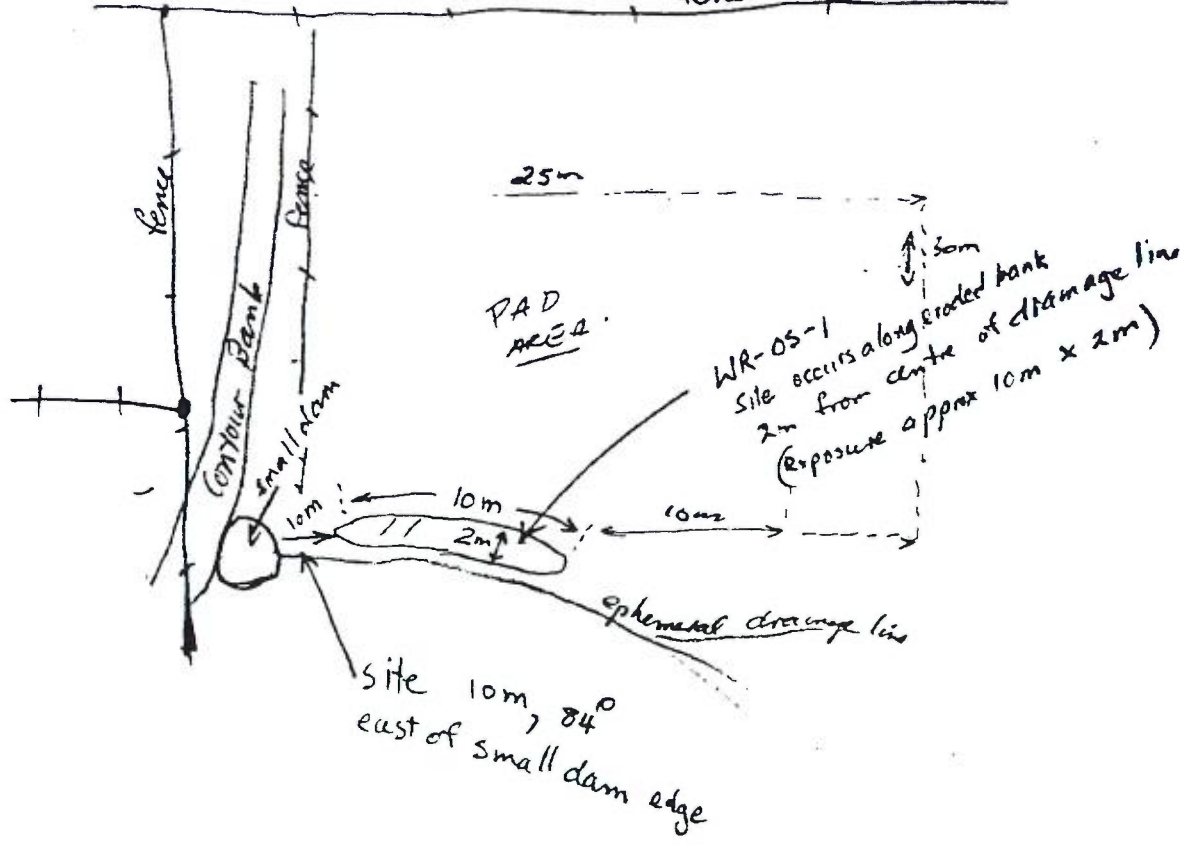 fence
fence
Contour Bank
small dam
25m
30m
PAD
AREA.
WR-OS-1
Site occurs along eroded bank
2m from centre of drainage line
(exposure approx 10m x 2m)
10m
10m
2m
10m
ephemeral drainage line
site 10m, 84°
east of small dam edge